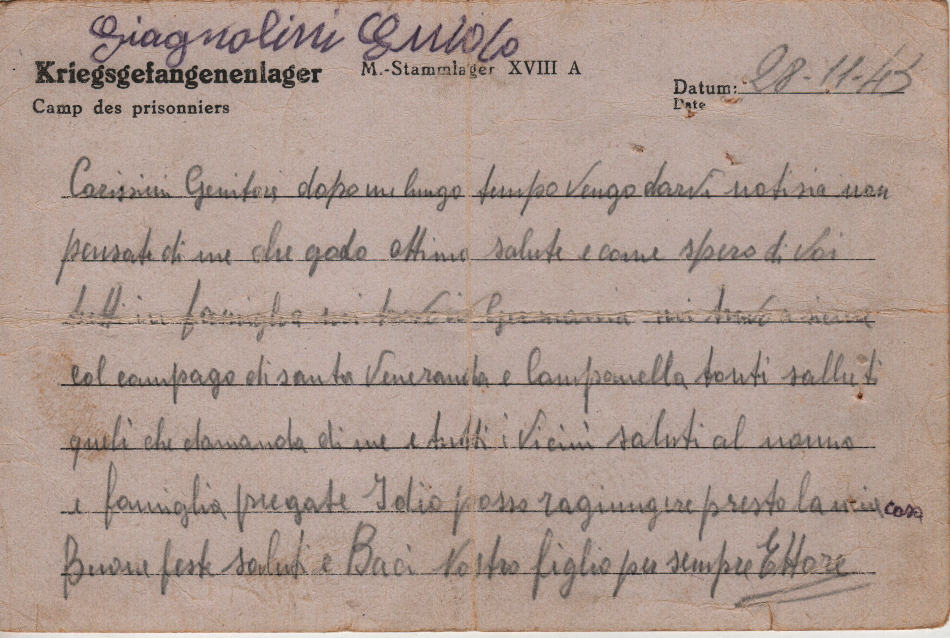 Giagnolini Guido
Kriegsgefangenenlager M.-Stammlager XVIII A
Camp des prisonniers
Datum: 28-11-43
Date
Carissimi Genitori dopo un lungo tempo vengo darvi notisia non
pensate di me che godo ottimo salute e come spero di voi
tutti in famiglia mi trovo in Germania mi trovo asieme
col compago di santa Veneranda e Campanella tanti salluti
queli che domanda di me e tutti i vicini saluti al nonno
e famiglia pregate Idio posso ragiungere presto la mia casa
Buone feste saluti e Baci Vostro figlio per sempre Ettore